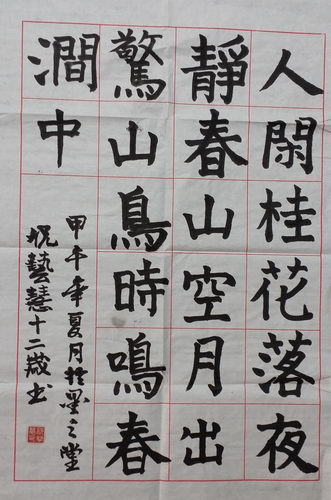 人閑桂花落夜
靜春山空月出
驚山鳥時鳴春
澗中
甲午年夏月於墨之堂
藝慧十二歲书